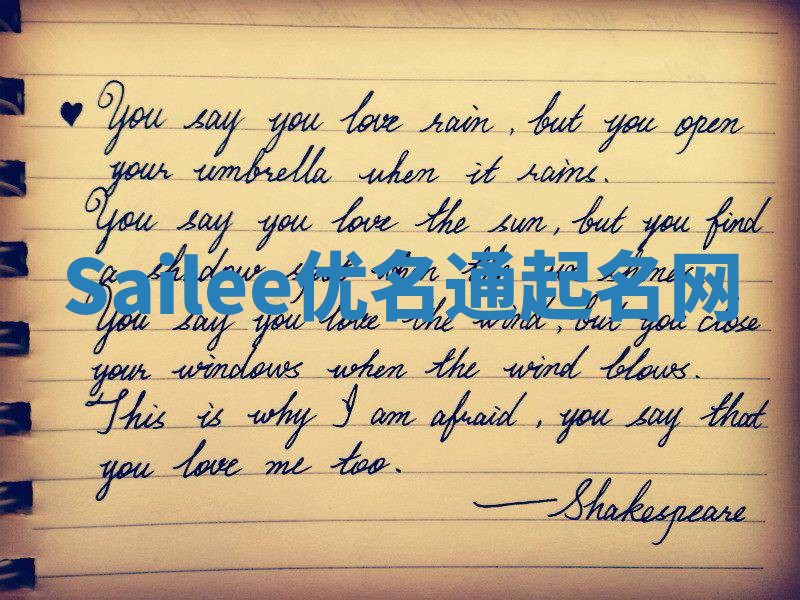 You say you love rain, but you open
your umbrella when it rains.
You say you love the sun, but you find
a shadow spot when the sun shines.
Sailee优名通起名网
You say you love the wind, but you close
your windows when the wind blows.
This is why I am afraid, you say that
you love me too.
—Shakespeare